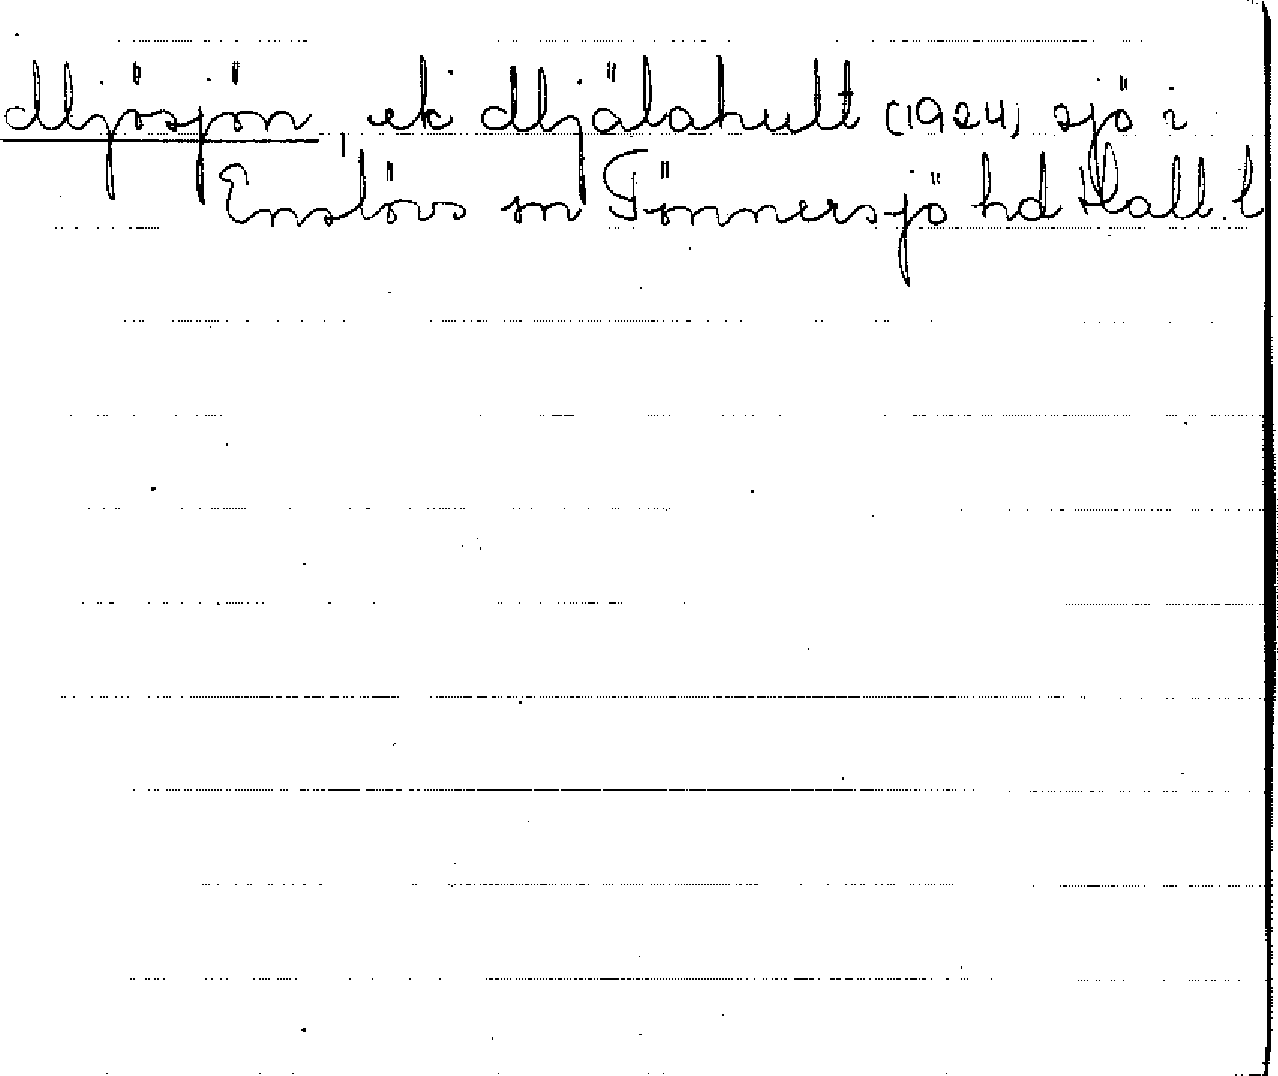 Mjösjön, ek Mjälahult (1924) sjö i
Enslövs sn Tönnersjö hd Hall. l